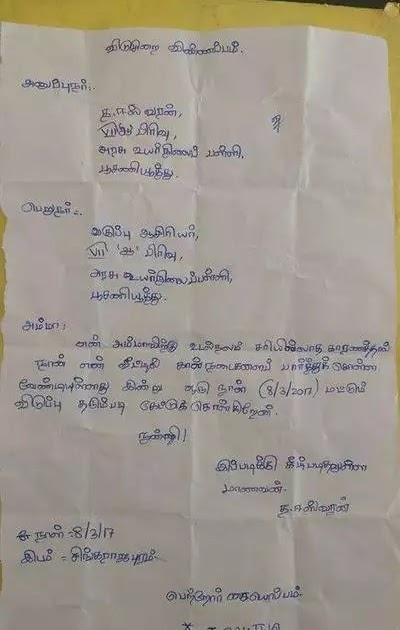 விடுமுறை விண்ணப்பம்.
அனுப்புநர்:
த.ஈஸ்வரன்,
VII ஆ பிரிவு,
அரசு உயர்நிலைப் பள்ளி,
பூசணியூத்து.
பெறுநர்:-
வகுப்பு ஆசிரியர்,
VII 'ஆ' பிரிவு,
அரசு உயர்நிலைப்பள்ளி,
பூசணியூத்து.
அம்மா:
என் அம்மாவிற்கு உடல்நலம் சரியில்லாத காரணத்தால்
நான் என் வீட்டில் கால்நடைகளைப் பார்த்துக் கொள்ள
வேண்டியுள்ளது இன்று ஒரு நாள் (8/3/2017) மட்டும்
விடுப்பு தரும்படி கேட்டுக்கொள்கிறேன்.
நன்றி!
இப்படிக்கு கீழ்படிதலுள்ள
மாணவன்.
த.ஈஸ்வரன்
நாள் :- 8/3/17
இடம் = சிங்கராஜபுரம்.
பெற்றோர் கையொப்பம்.